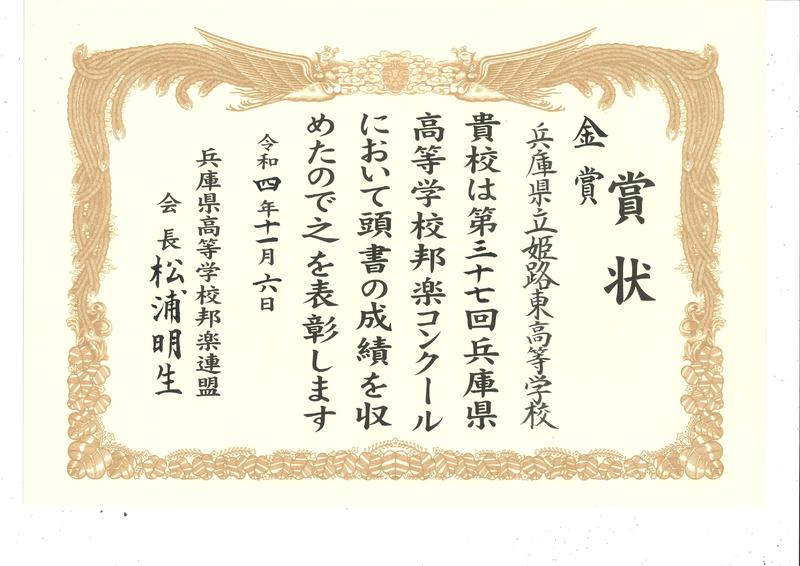 賞状
金賞
兵庫県立姫路東高等学校
貴校は第三十七回兵庫県
高等学校邦楽コンクール
において頭書の成績を収
めたので之を表彰します
令和四年十一月六日
兵庫県高等学校邦楽連盟
会長 松浦明生